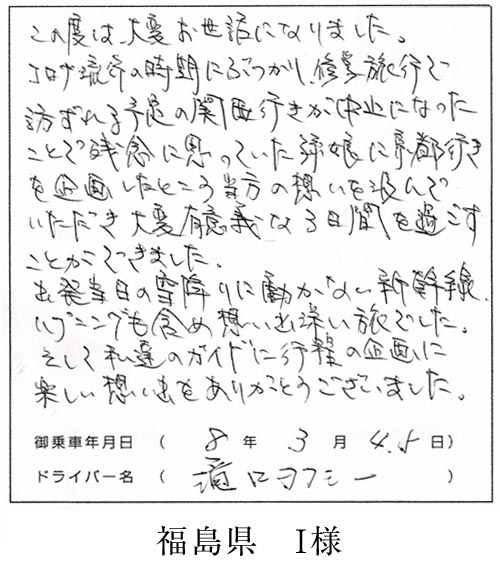 この度は大変お世話になりました。
コロナ流行の時期にぶつかり、修学旅行で
訪ずれる予定の関西行きが中止になった
ことで残念に思っていた孫娘に京都行き
を企画したところ当方の想いを汲んで
いただき大変有意義な3日間を過ごす
ことができました。
出発当日の雪降りに動かない新幹線、
ハプニングも含め想い出深い旅でした。
そして私達のガイドに行程の企画に
楽しい想い出をありがとうございました。
御乗車年月日 ( 8 年 3 月 4.5 日)
ドライバー名 ( 滝口タクシー )
福島県 I様